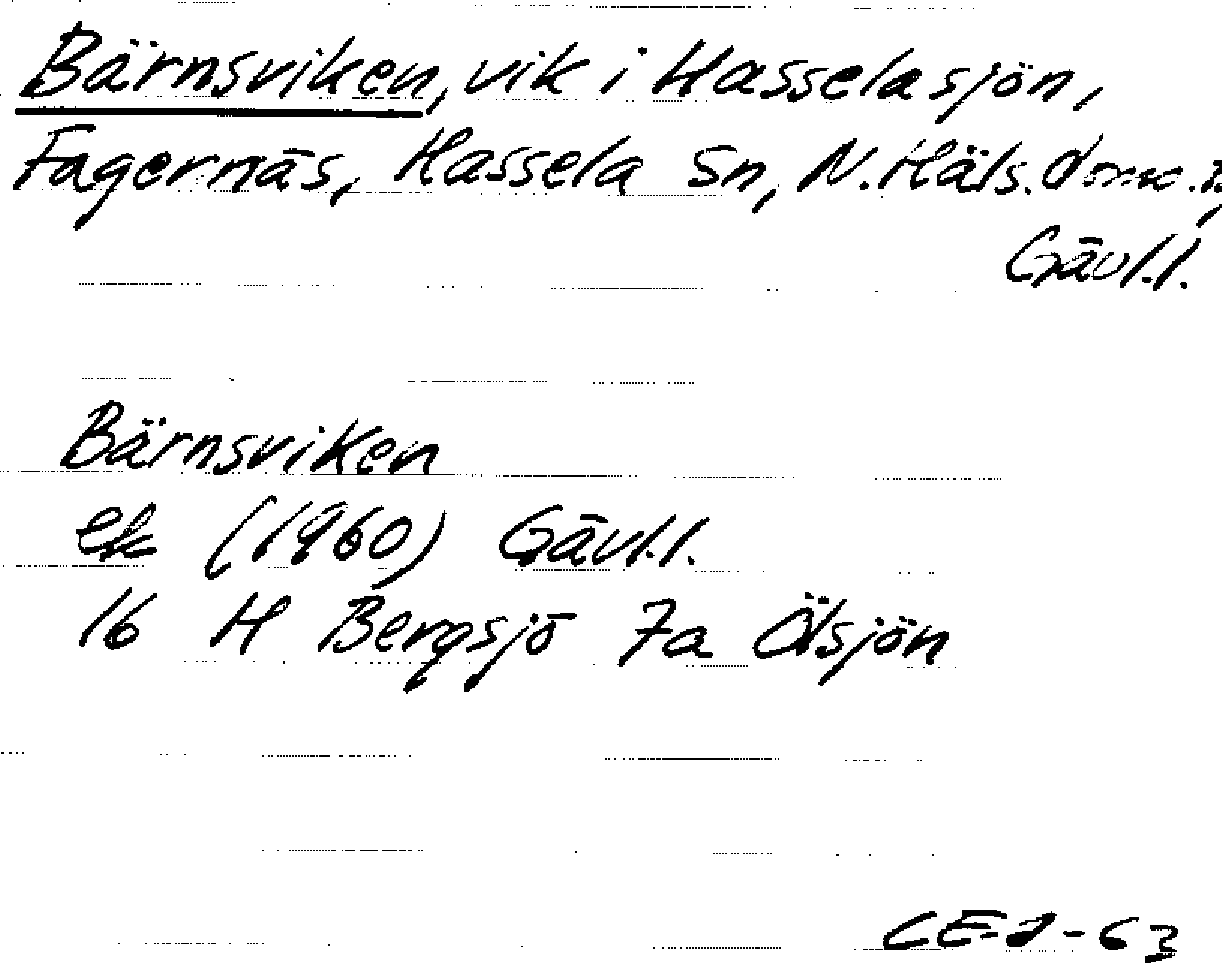 Bärnsviken, vik i Hasselasjön,
Fagernäs, Hassela Sn, N. Häls.
Gävl.l.
Bärnsviken
ek (1960) Gävl.l.
16 H Bergsjö 7a Älsjön